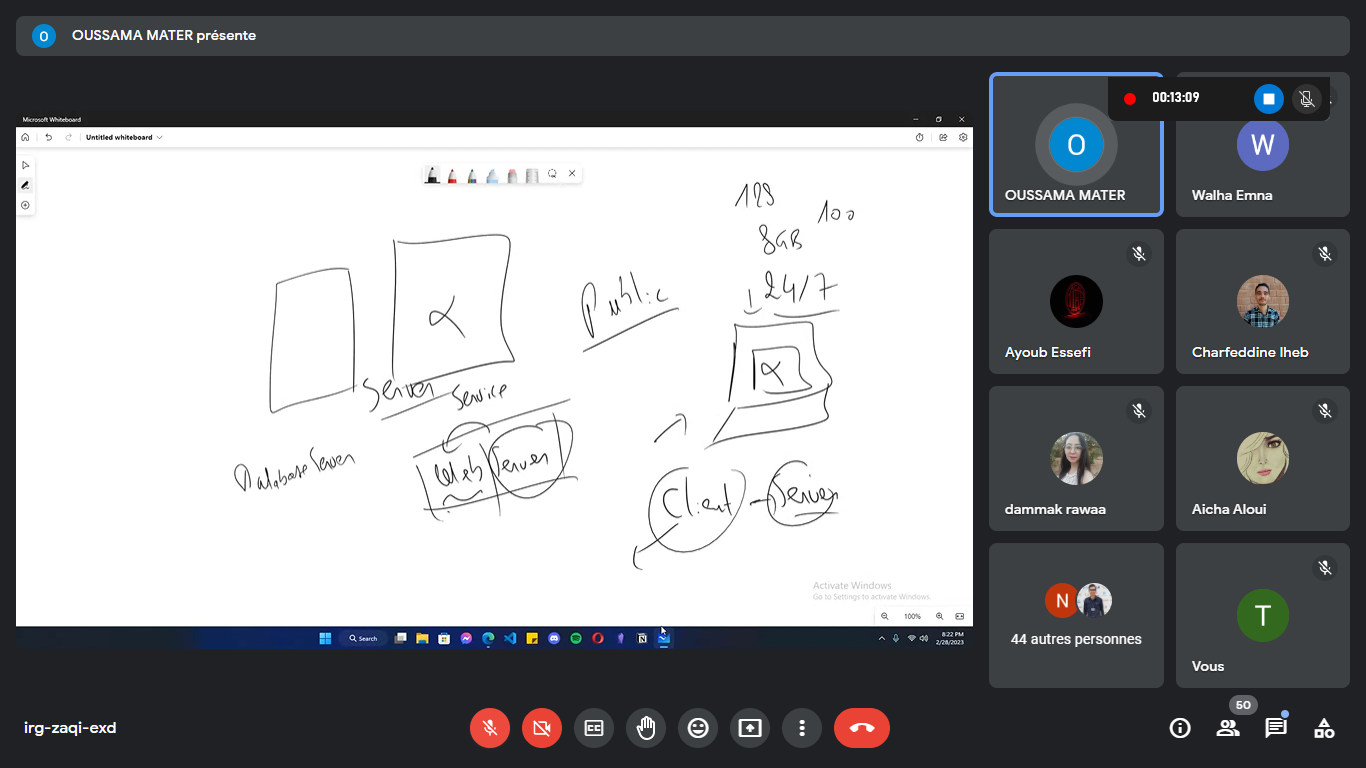 O OUSSAMA MATER présente
Microsoft Whiteboard
Untitled whiteboard
Public
α
Server
Service
Database Server
Web Server
100
8GB
24/7
α
Client - Server
Activate Windows
Go to Settings to activate Windows.
100%
Search
8:22 PM
2/28/2023
00:13:09
O
OUSSAMA MATER
W
Walha Emna
Ayoub Essefi
Charfeddine Iheb
dammak rawaa
Aicha Aloui
N
44 autres personnes
T
Vous
irg-zaqi-exd
50